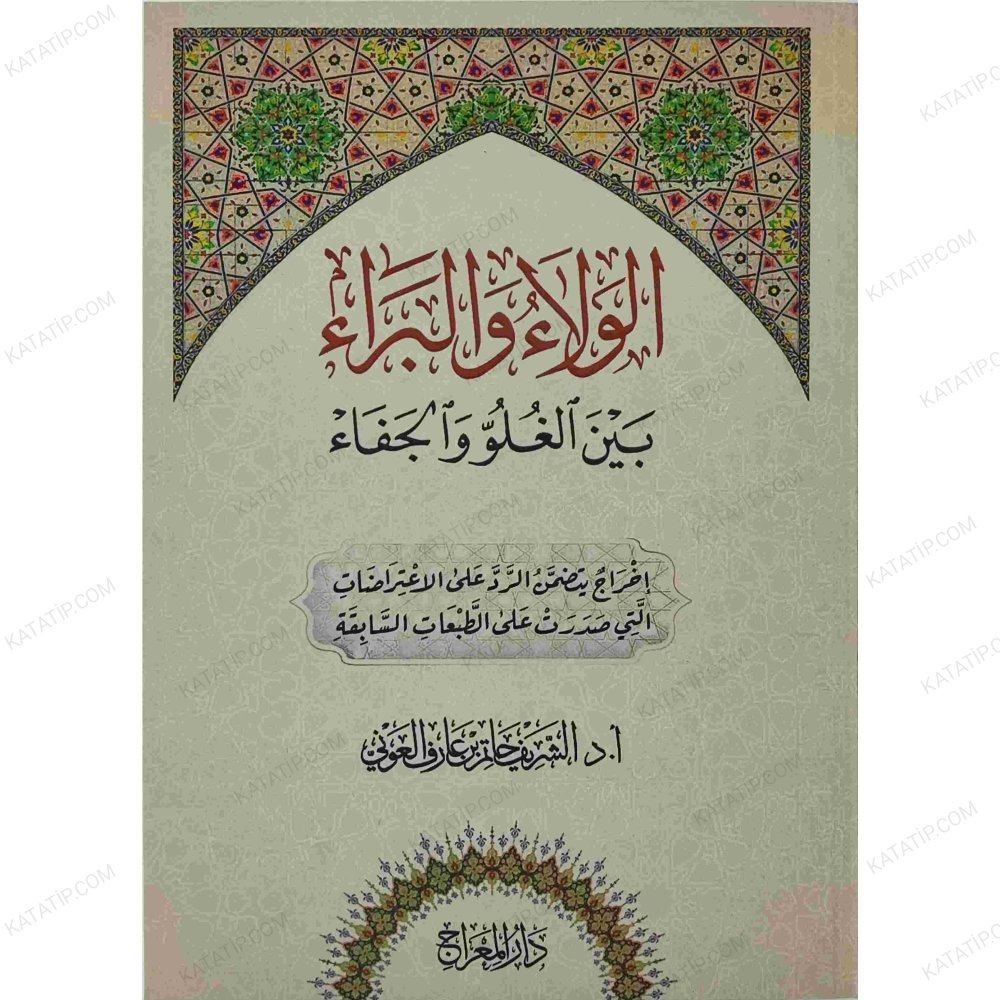 الوَلَاءُ وَالبَرَاء
بَيْنَ ٱلغُلُوِّ وَٱلجَفَاءْ
إخْرَاجٌ يتضمَّنُ الرَّدَّ عَلَى الاعْتِرَاضَاتِ
الَّتِي صَدَرَتْ عَلَى الطَّبْعَاتِ السَّابِقَةِ
أ.د الشَّرِيفِ حَاتِم بْن عَارِف العَوْنِي
دَارُ المِعْرَاجِ
KATATIP.COM